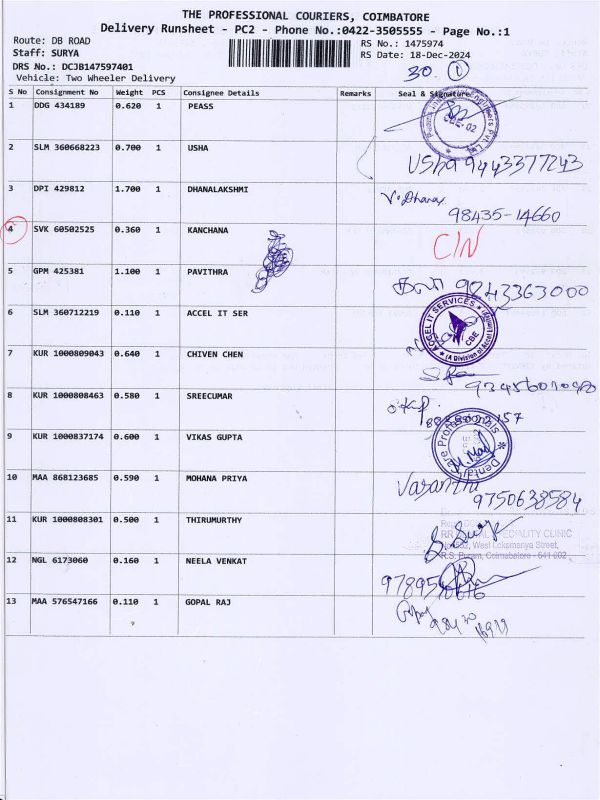 THE PROFESSIONAL COURIERS, COIMBATORE
Delivery Runsheet - PC2 - Phone No.:0422-3505555 - Page No.:1
Route: DB ROAD
Staff: SURYA
DRS No.: DCJB147597401
Vehicle: Two Wheeler Delivery
RS No.: 1475974
RS Date: 18-Dec-2024
30. 1
S No Consignment No Weight PCS Consignee Details Remarks Seal & Signature
1 DDG 434189 0.620 1 PEASS
CBE-02
2 SLM 360668223 0.700 1 USHA
Usha 9443377243
3 DPI 429812 1.700 1 DHANALAKSHMI
V. Dhana
98435-14660
4 SVK 60502525 0.360 1 KANCHANA
C/N
5 GPM 425381 1.100 1 PAVITHRA
கலா 9043363000
6 SLM 360712219 0.110 1 ACCEL IT SER
ACCEL IT SERVICES
CBE
7 KUR 1000809043 0.640 1 CHIVEN CHEN
8 KUR 1000808463 0.580 1 SREECUMAR
9 KUR 1000837174 0.600 1 VIKAS GUPTA
10 MAA 868123685 0.590 1 MOHANA PRIYA
Vasanthi
9750638584
11 KUR 1000808301 0.500 1 THIRUMURTHY
CLINIC
West Lokamanya Street,
R.S. Puram, Coimabatore - 641 002
12 NGL 6173060 0.160 1 NEELA VENKAT
13 MAA 576547166 0.110 1 GOPAL RAJ